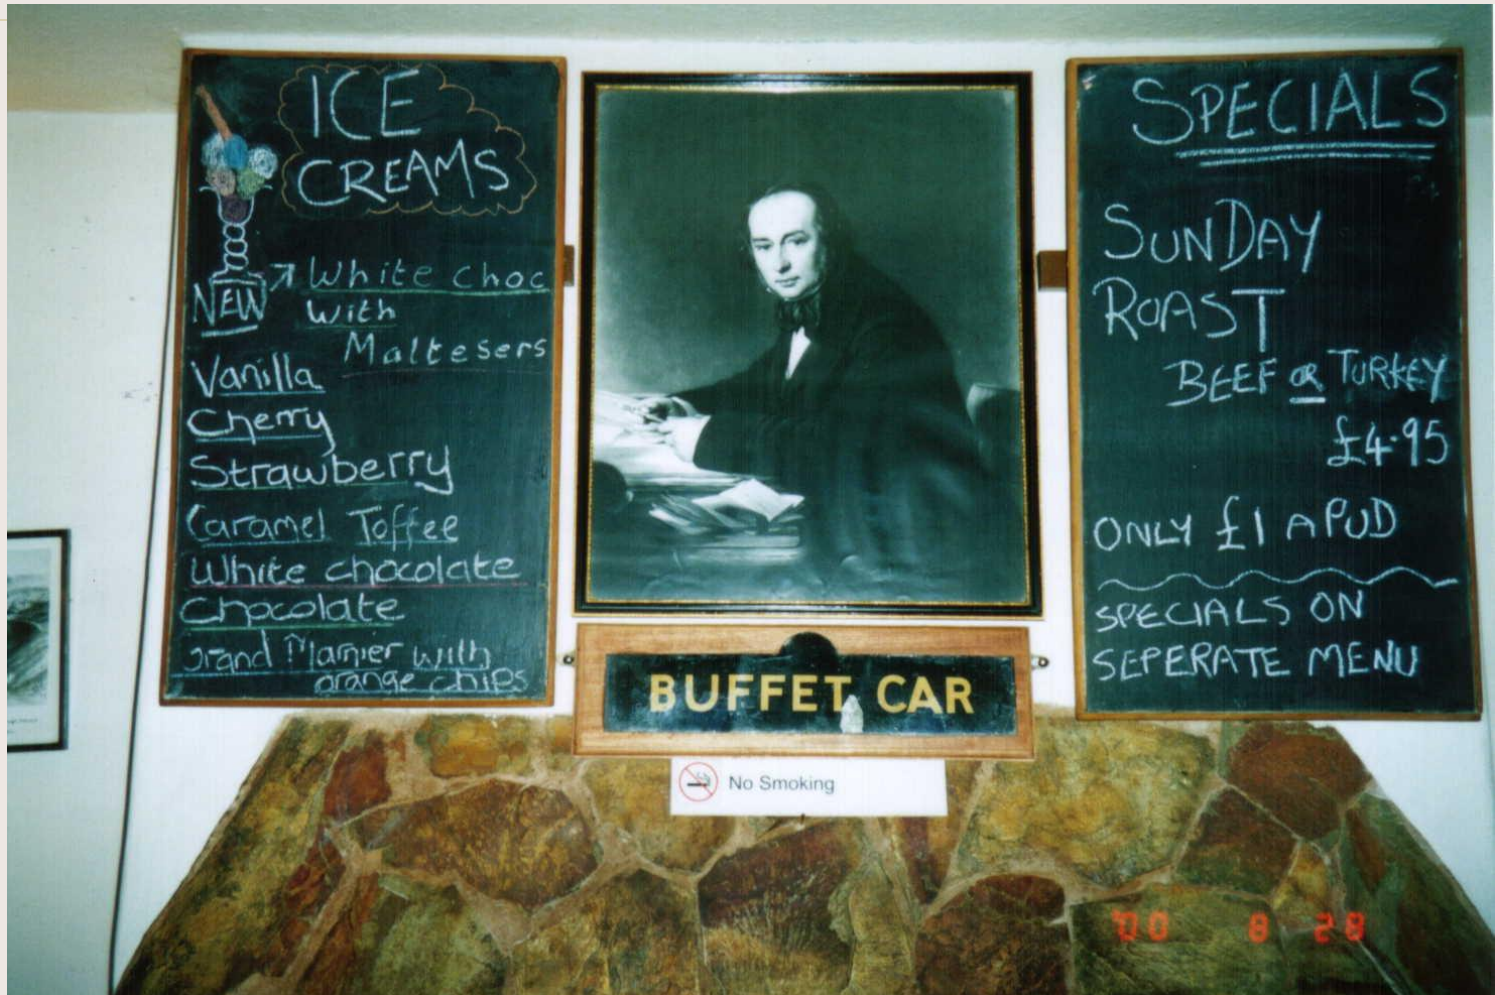 ICE
CREAMS
NEW
White choc
with
Maltesers
Vanilla
Cherry
Strawberry
Caramel Toffee
White chocolate
Chocolate
Grand Marnier with
orange chips
BUFFET CAR
No Smoking
SPECIALS
SUNDAY
ROAST
BEEF OR TURKEY
£4.95
ONLY £1 A PUD
SPECIALS ON
SEPERATE MENU
'00 8 28